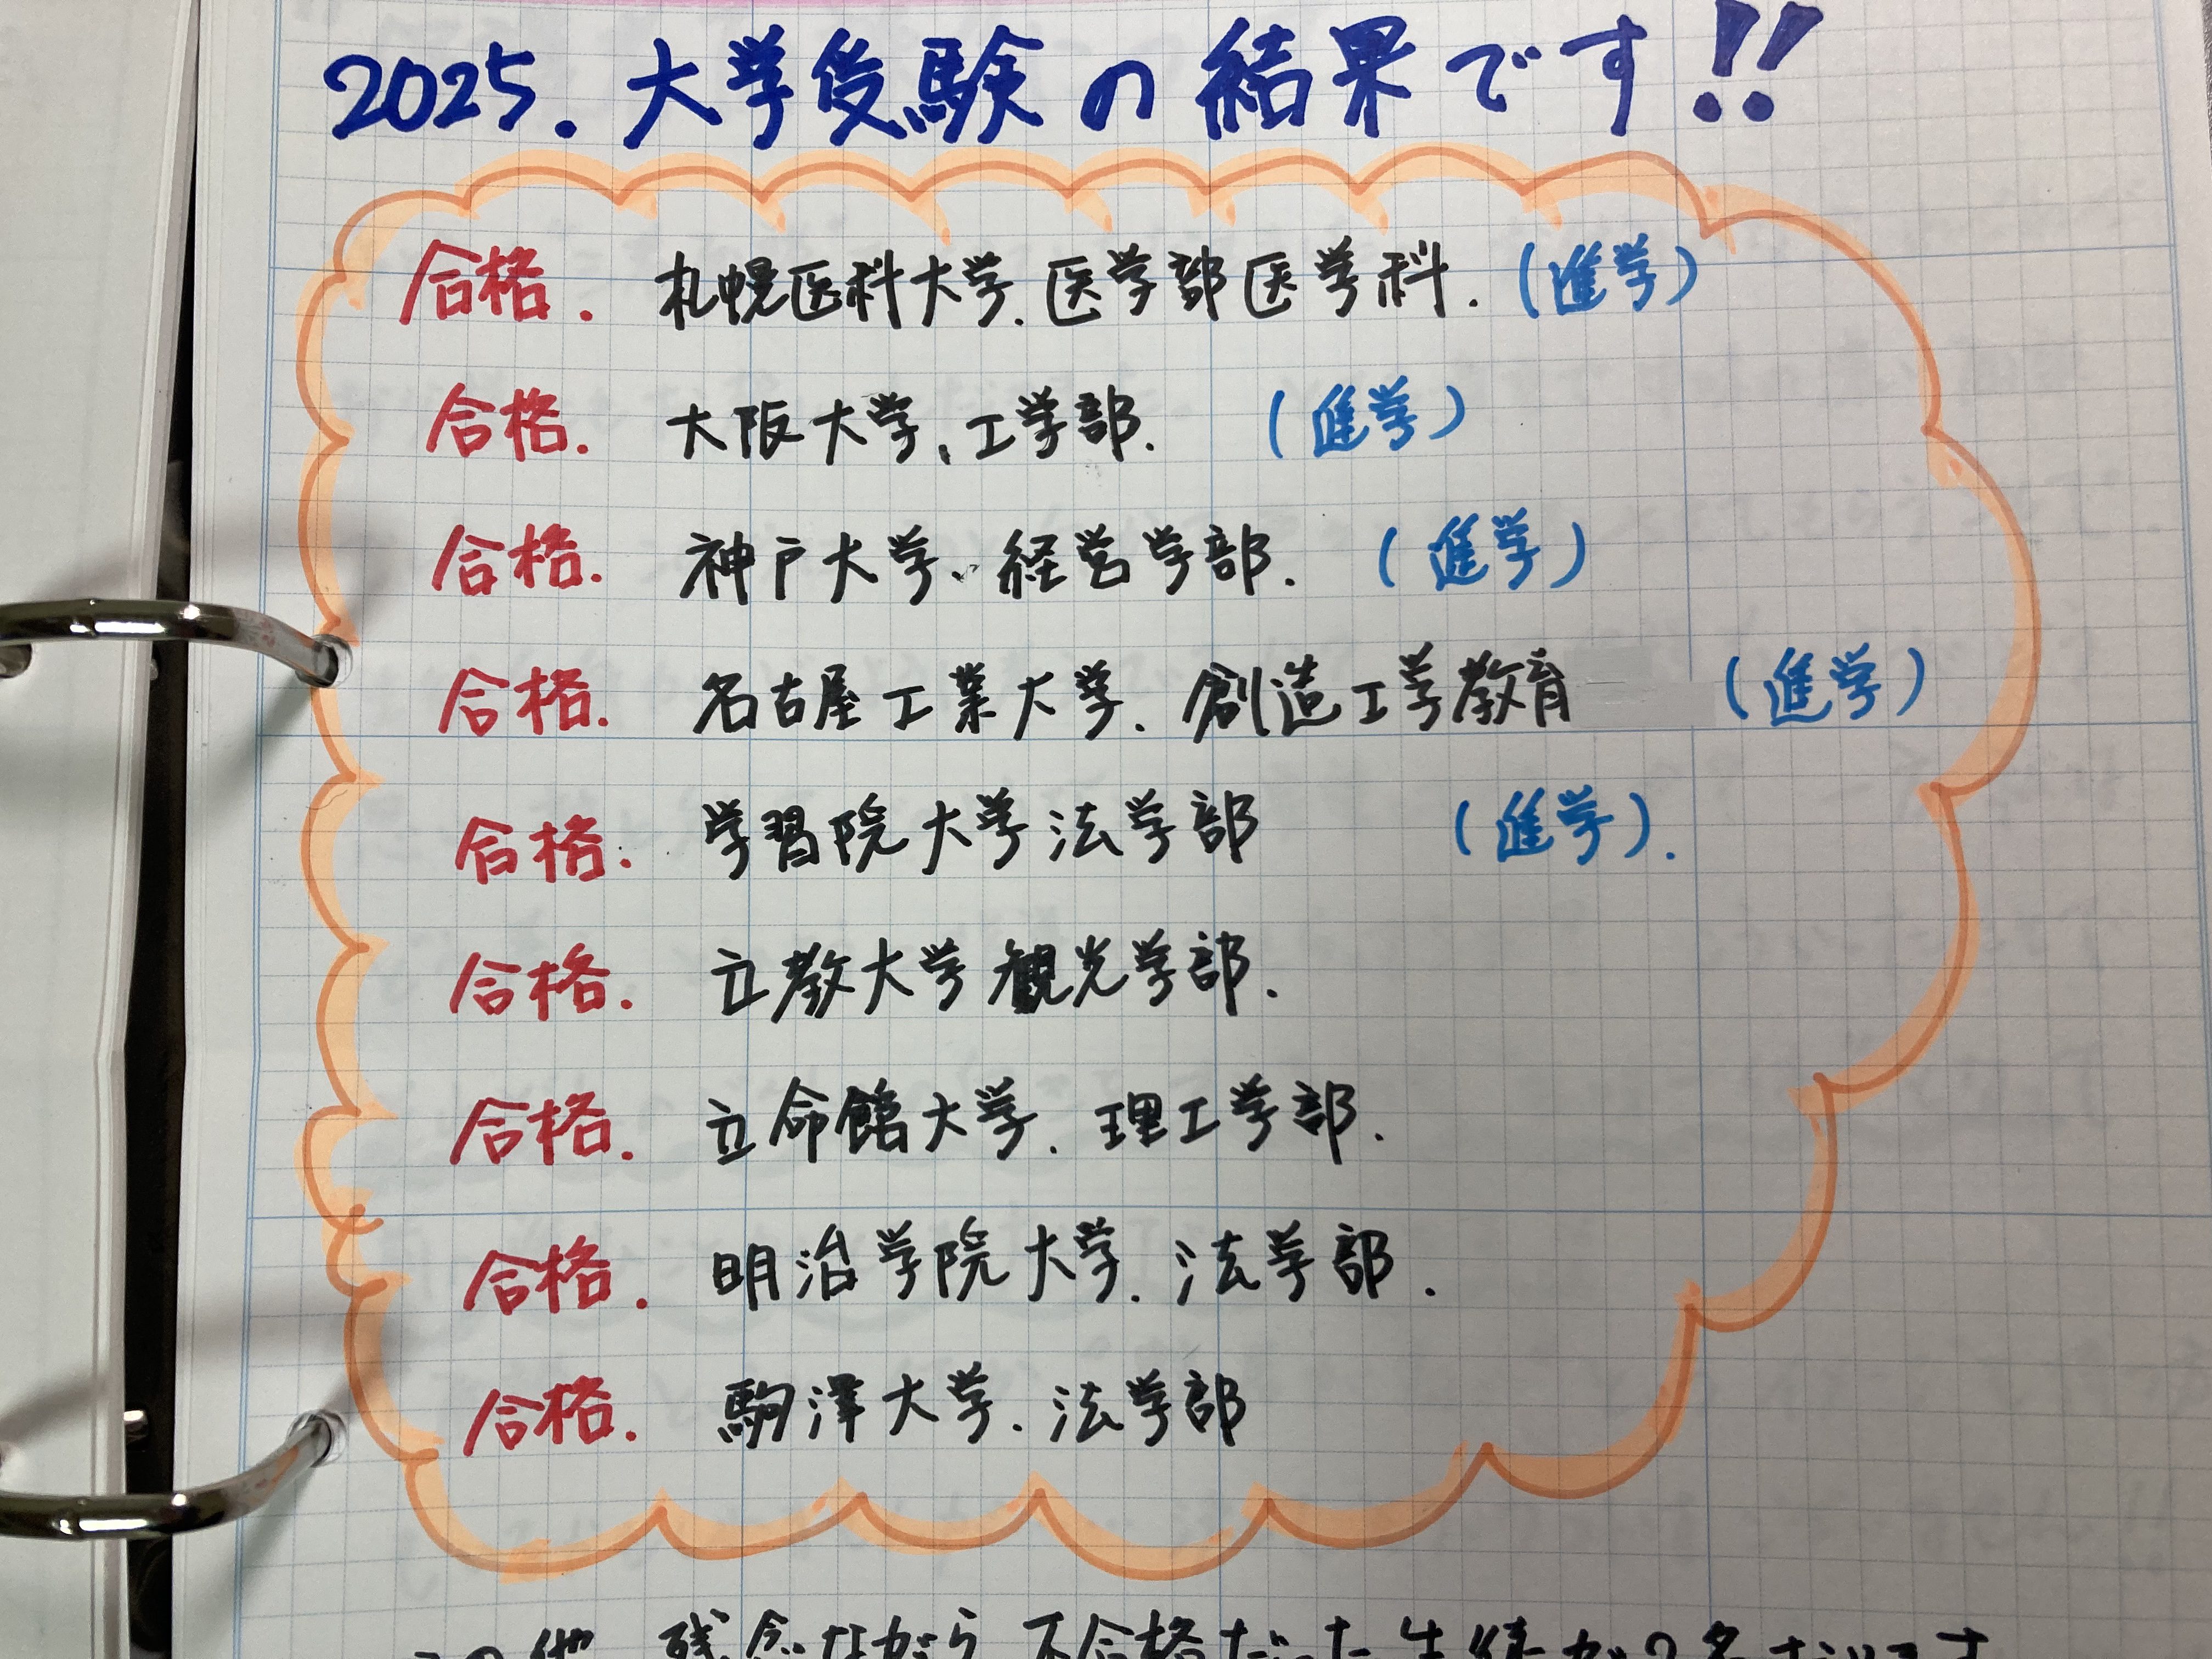 2025. 大学受験の結果です!!
合格. 札幌医科大学. 医学部医学科. (進学)
合格. 大阪大学、工学部. (進学)
合格. 神戸大学、経営学部. (進学)
合格. 名古屋工業大学. 創造工学教育 (進学)
合格. 学習院大学法学部 (進学).
合格. 立教大学観光学部.
合格. 立命館大学. 理工学部.
合格. 明治学院大学. 法学部.
合格. 駒澤大学. 法学部
この他、残念ながら不合格だった生徒が2名おります